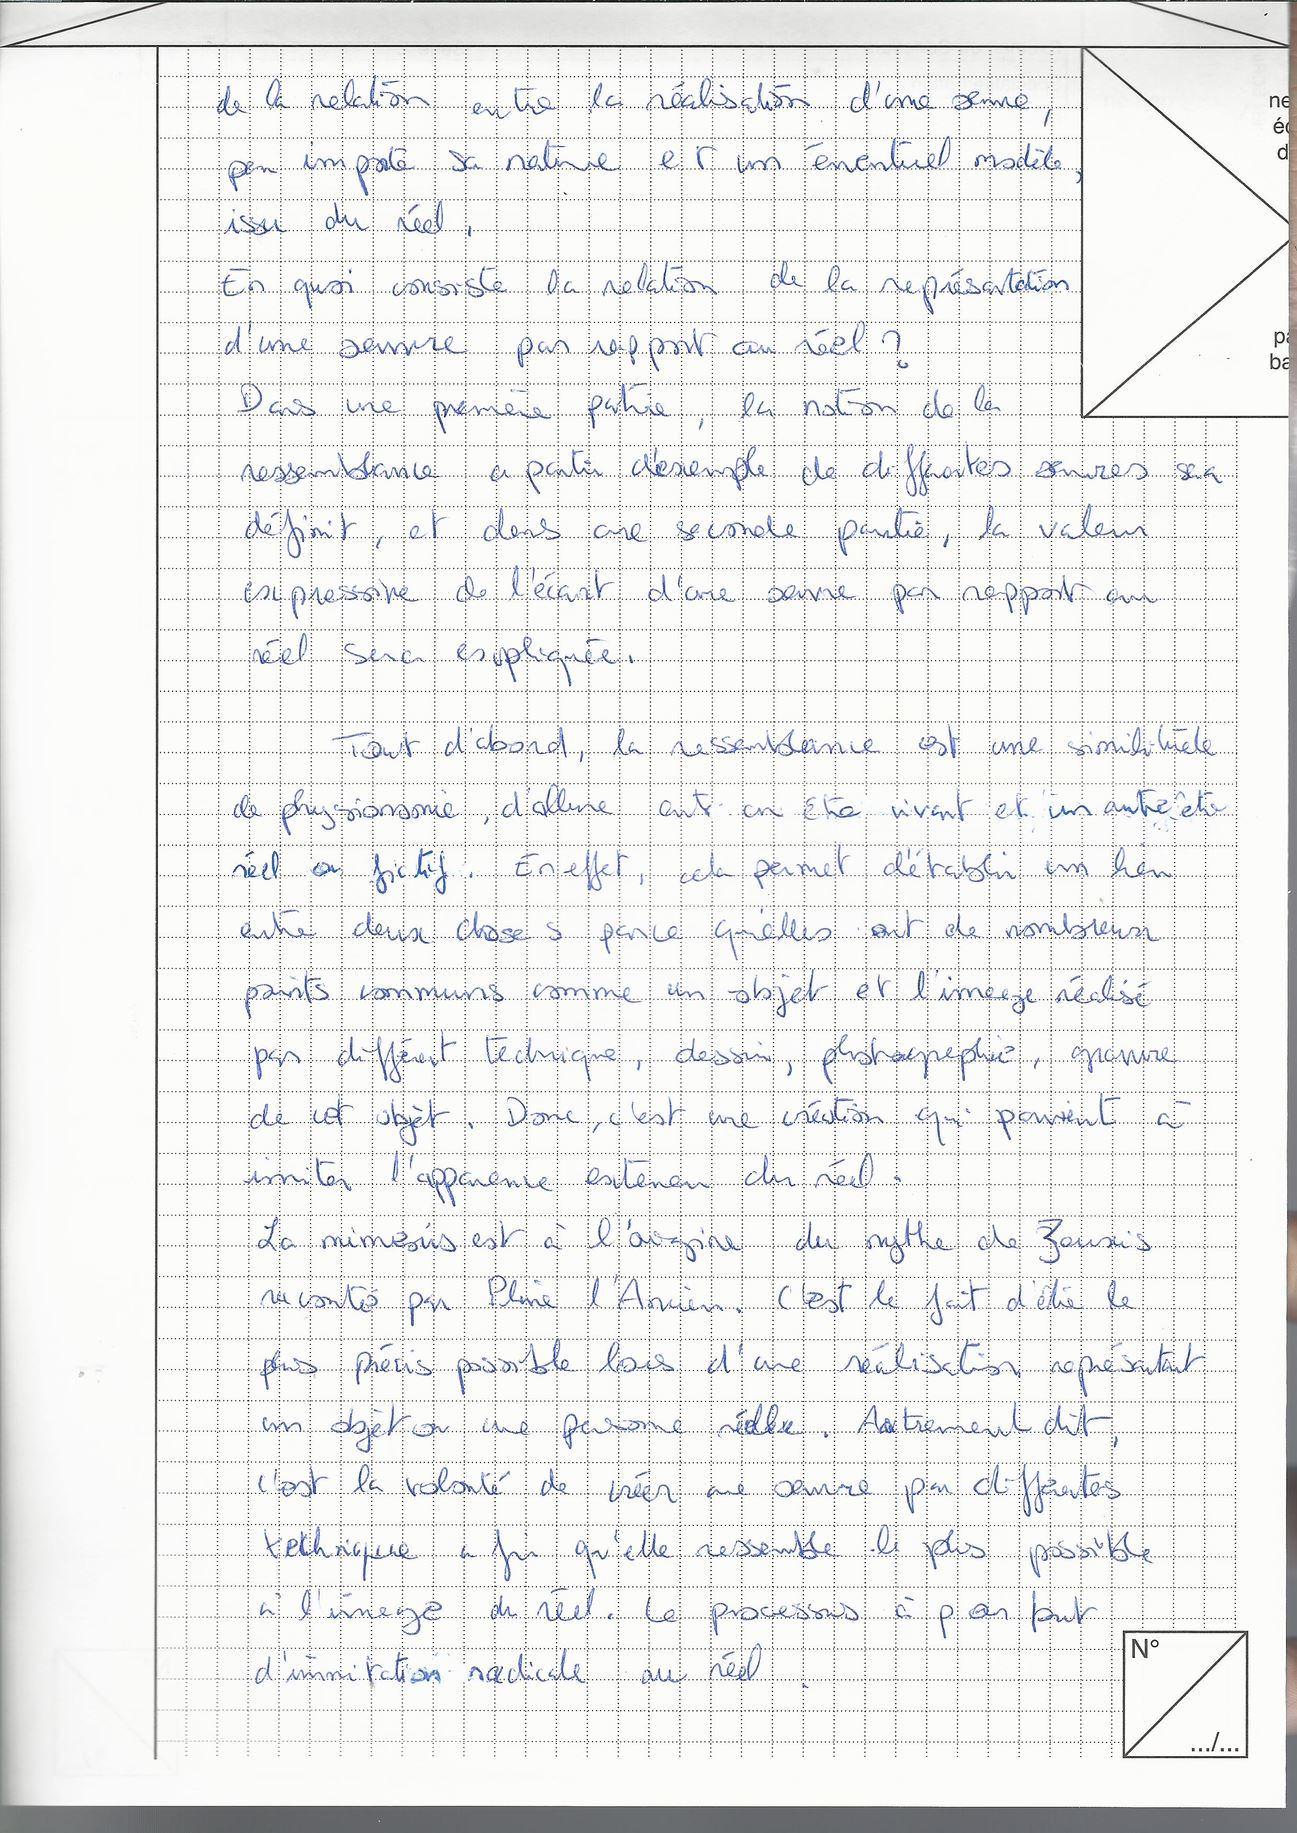 de la relation entre la réalisation d'une œuvre,
peu importe sa nature et un éventuel modèle,
issu du réel.
En quoi consiste la relation de la représentation
d'une œuvre par rapport au réel ?
Dans une première partie, la notion de la
ressemblance a partir d'exemple de différentes œuvres sera
définit, et dans une seconde partie, la valeur
expressive de l'écart d'une œuvre par rapport au
réel sera expliquée.
Tout d'abord, la ressemblance est une similitude
de physionomie, d'allure entre un être vivant et un autre être
réel ou fictif. En effet, cela permet d'établir un lien
entre deux choses parce qu'elles ont de nombreux
points communs comme un objet et l'image réalisé
par différent technique, dessin, photographie, gravure
de cet objet. Donc, c'est une création qui parvient à
imiter l'apparence exterieur du réel.
La mimesis est à l'origine du mythe de Zeuxis
raconté par Pline l'Ancien. C'est le fait d'être le
plus précis possible lors d'une réalisation représentant
un objet ou une personne réelle. Autrement dit,
c'est la volonté de créer une œuvre par différentes
technique a fin qu'elle ressemble le plus possible
à l'image du réel. Le processus à pour but
d'immitation radicale au réel.
ne
éc
d
pa
ba
N°
.../...